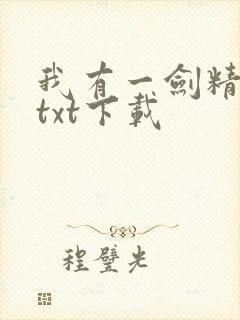 我有一劍精
txt下載
程璧光